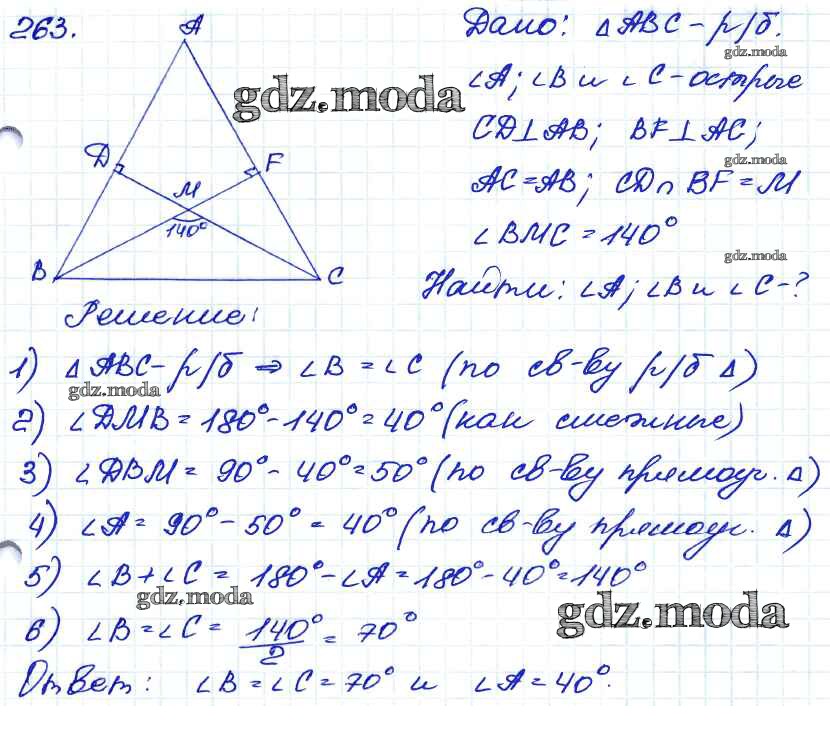 263.
A
Дано: △ABC - р/б.
gdz.moda
gdz.moda
∠A; ∠B и ∠C - острые
CD⊥AB; BF⊥AC;
D
F
gdz.moda
M
AC=AB; CD∩BF=M
140°
∠BMC=140°
gdz.moda
B
C
Найти: ∠A; ∠B и ∠C-?
Решение:
1) △ABC - р/б ⇒ ∠B = ∠C (по св-ву р/б △)
gdz.moda
2) ∠DMB = 180°-140° = 40° (как смежные)
3) ∠DBM = 90° - 40° = 50° (по св-ву прямоуг. △)
4) ∠A = 90° - 50° = 40° (по св-ву прямоуг. △)
5) ∠B+∠C = 180°-∠A = 180°-40°=140°
gdz.moda
gdz.moda
6) ∠B=∠C= 140°/2 = 70°
Ответ: ∠B=∠C=70° и ∠A=40°.